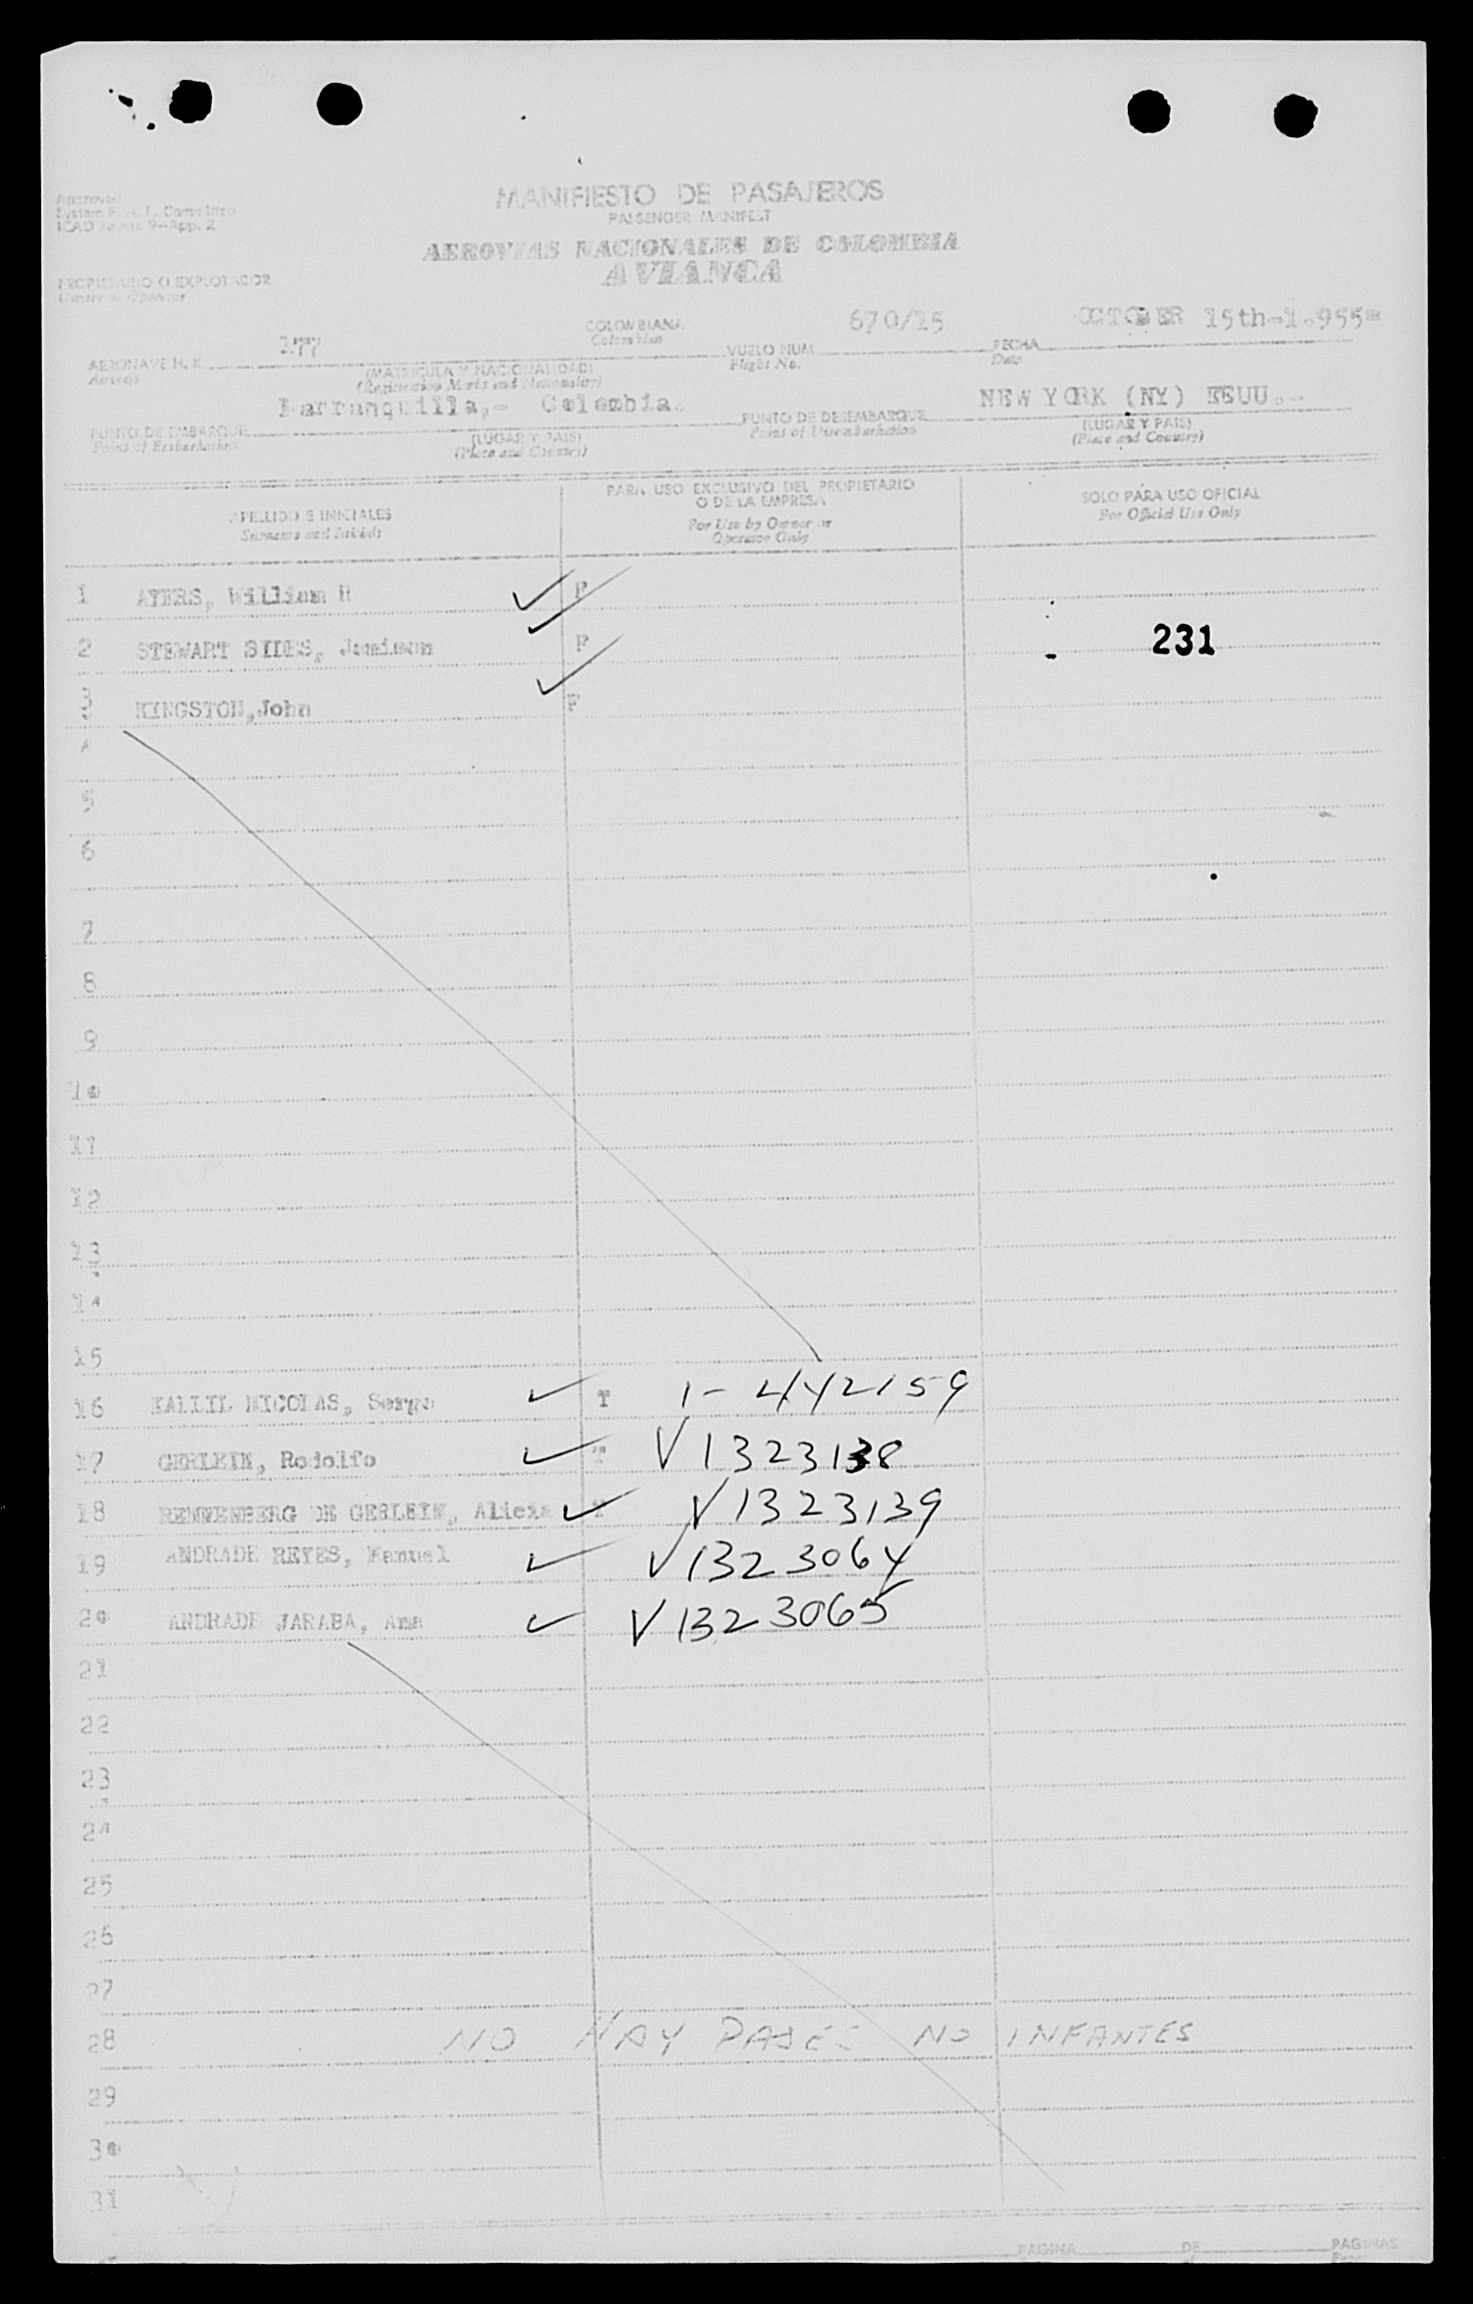 MANIFIESTO DE PASAJEROS
PASSENGER MANIFEST
Approved
System Committee
ICAO 9-App. 2
AEROVIAS NACIONALES DE COLOMBIA
AVIANCA
PROPIETARIO O EXPLOTADOR
Owner or Operator
177 COLOMBIANA 670/15 OCTOBER 15th-1.955=
Colombian
AERONAVE H. K. (MATRICULA Y NACIONALIDAD) VUELO NUM. FECHA
Aircraft (Registration Marks and Nationality) Flight No. Date
Barranquilla,- Colombia. NEW YORK (NY) EEUU.--
PUNTO DE EMBARQUE (LUGAR Y PAIS) PUNTO DE DESEMBARQUE (LUGAR Y PAIS)
Point of Embarkation (Place and Country) Point of Disembarkation (Place and Country)
APELLIDO E INICIALES PARA USO EXCLUSIVO DEL PROPIETARIO O DE LA EMPRESA SOLO PARA USO OFICIAL
Surname and Initials For Use by Owner or Operator Only For Official Use Only
1 AYERS, William H F
2 STEWART SIDES, Jamison F 231
3 KINGSTON,John F
4
5
6
7
8
9
10
11
12
13
14
15
16 KALLIL NICOLAS, T 1-442159
17 GERLEIN, Rodolfo T V1323138
18 RENNENBERG DE GERLEIN, Alicia T V1323139
19 ANDRADE REYES, Manuel V1323064
20 ANDRADE JARABA, Ana V1323065
21
22
23
24
25
26
27
28 NO HAY PASES NO INFANTES
29
30
31
PAGINA DE PAGINAS